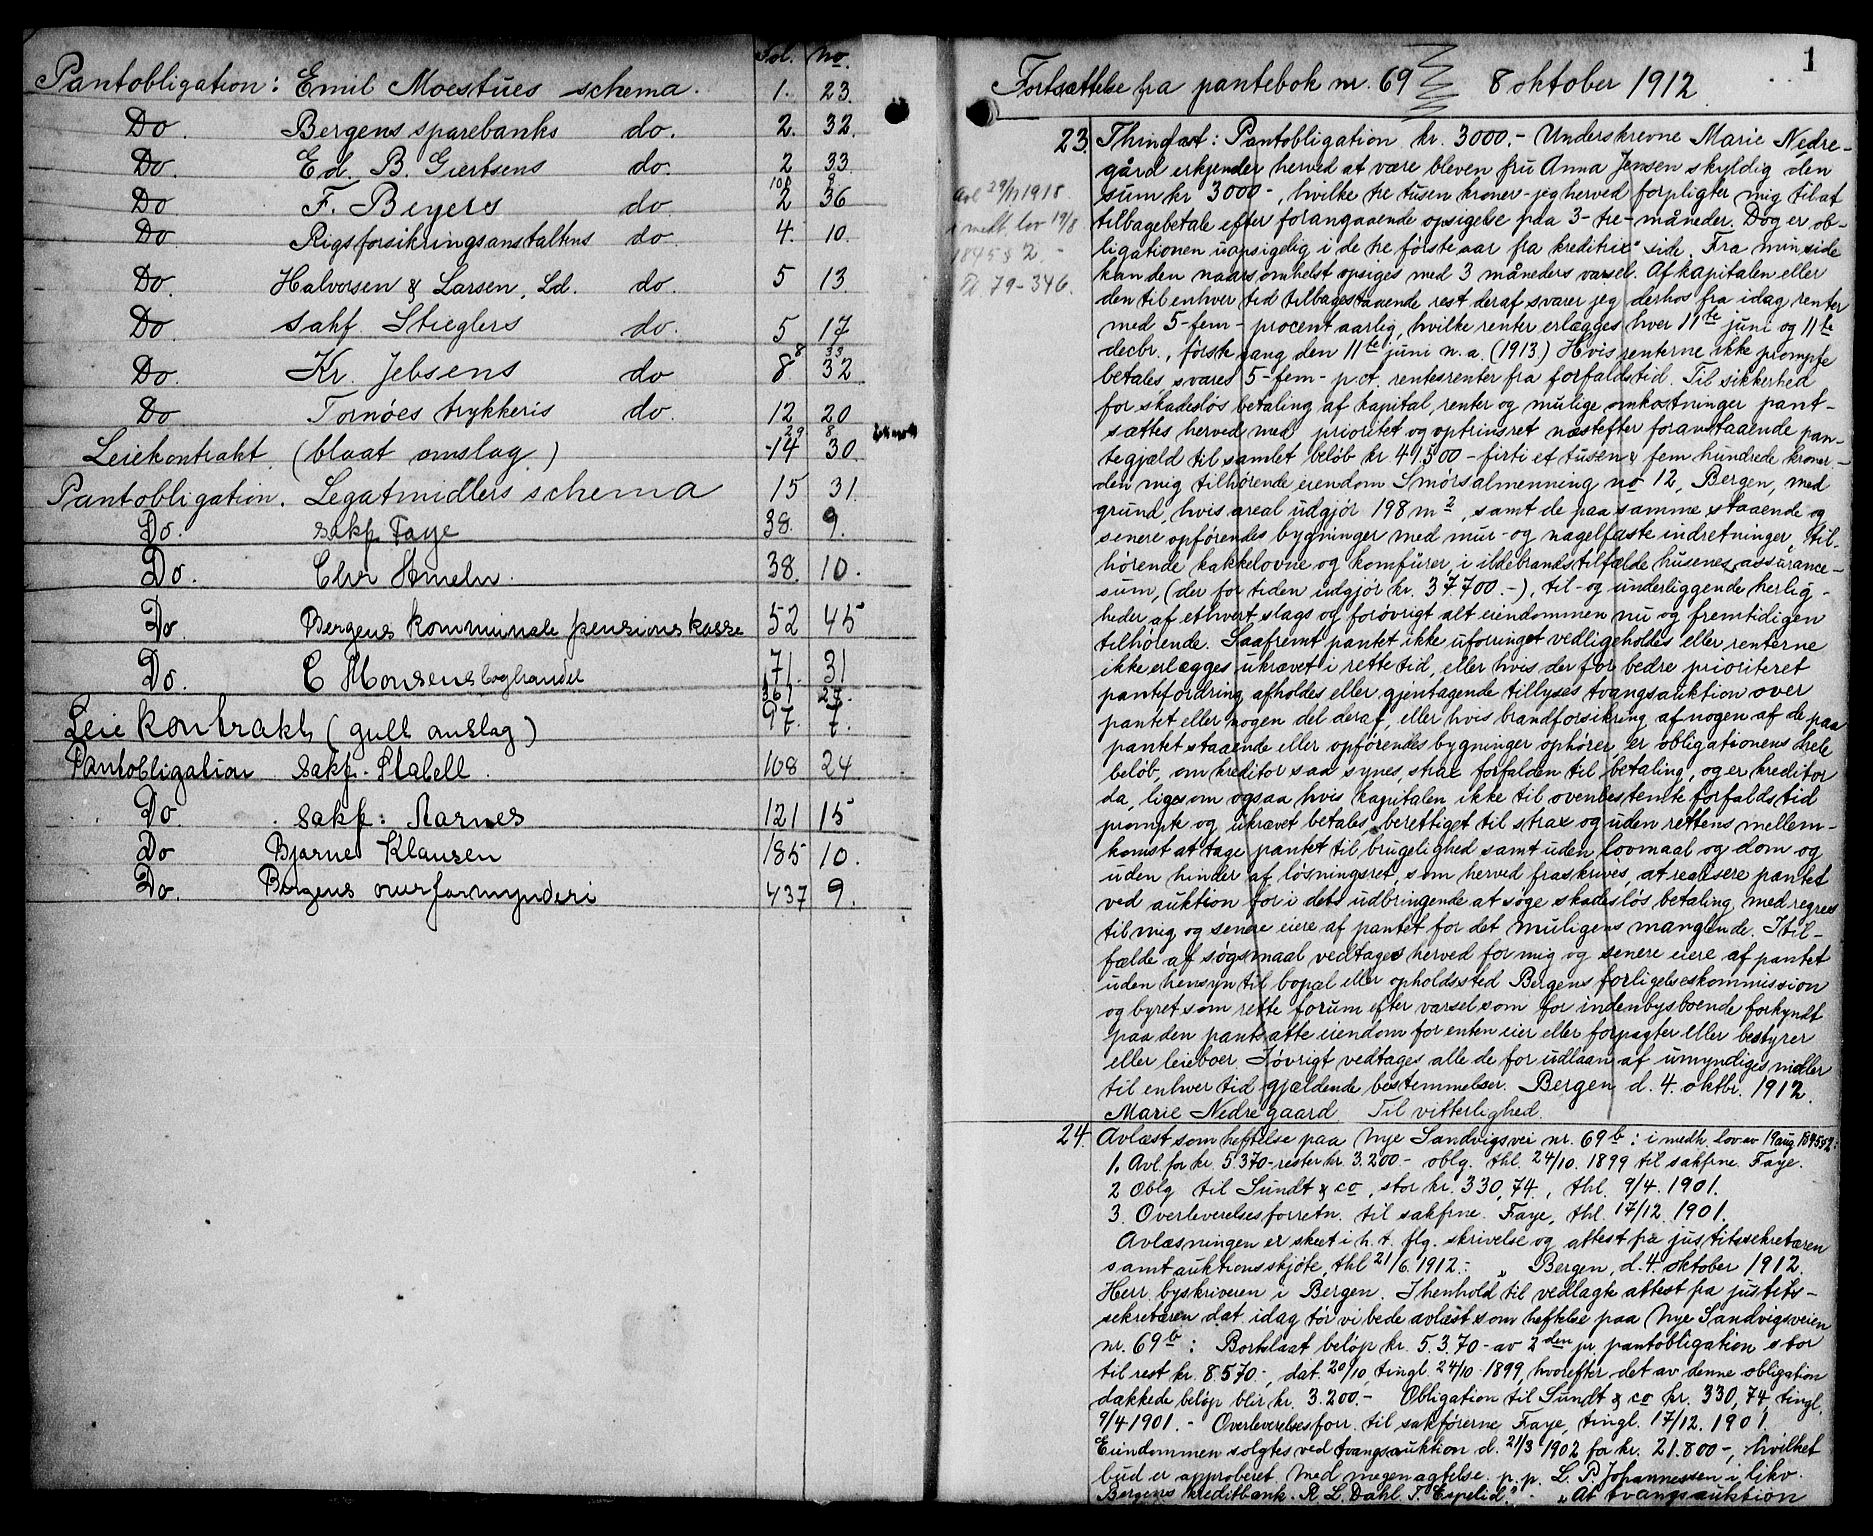 Fol. No.
Pantobligation: Emil Moestues schema. 1. 23.
Do. Bergens sparebanks do. 2. 32.
Do. Ed. B. Giertsens do. 2 33
100 8
Do F. Beyers do. 2 36
Do Rigsforsikringsanstaltens do. 4. 10.
Do. Halvorsen & Larsen, Ld. do. 5 13.
Do sakf. Stieglers do. 5 17
8 33
Do. Kr. Jebsens do 8. 32
Do Tornöes trykkeris do. 12 20
29 8
Leiekontrakt. (blaat omslag.) 14 30.
Pantobligation. Legatmidlers schema 15 31.
Do. sakf. Faye 38. 9.
Do. Chr 38. 10.
Do Bergens kommunale pensionskasse 52 45
Do. C Monsens boghandel 71. 31
361 27.
Leie kontrakt (gult omslag) 97. 7.
Pantobligation sakf. Stabell. 108 24
Do. sakf: Aarnes 121 15
Do Bjarne Klausen 185 10.
Do. Bergens overformynderi 437 9.
1
Fortsættelse fra pantebok nr. 69 8 oktober 1912
23. Thinglæst: Pantobligation kr. 3000.- Underskrevne Marie Nedre-
gård erkjender herved at være bleven fru Anna Jensen skyldig den
sum kr 3000-, hvilke tre tusen kroner jeg herved forpligter mig til at
tilbagebetale efter forangaaende opsigelse paa 3-tre-måneder. Dog er ob-
ligationen uopsigelig i de tre förste aar fra kreditrix' side. Fra min side
kan den naarsomhelst opsiges med 3 måneders varsel. Af kapitalen eller
den til enhver tid tilbagestaaende rest deraf svarer jeg derhos fra idag renter
med 5-fem- procent aarlig, hvilke renter erlægges hver 11te juni og 11te
decbr., förste gang den 11te juni n. a. (1913.) Hvis renterne ikke prompte
betales svares 5-fem- p.ct. rentesrenter fra forfaldstid. Til sikkerhed
for skadeslös betaling af kapital, renter og mulige omkostninger pant-
sættes herved med prioritet og optrinsret næstefter foranstaaende pan-
tegjæld til samlet belöb kr 41500- firti et tusen & fem hundrede kroner-
den mig tilhörende eiendom Smörsalmenning no 12, Bergen, med
grund, hvis areal udgjör 198 m2, samt de paa samme staaende og
senere opförendes bygninger med mur- og nagelfaste indretninger, til-
hörende kakkelovne og komfürer, i ildebrandstilfælde husenes assurance-
sum, (der for tiden udgjör kr. 37700.-), til- og underliggende herlig-
heder af ethvert slags og forövrigt alt eiendommen nu og fremtidigen
tilhörende. Saafremt pantet ikke uforringet vedligeholdes eller renterne
ikke erlægges ukrævet i rette tid, eller hvis der for bedre prioriteret
pantefordring afholdes eller gjentagende tillyses tvangsauktion over
pantet eller nogen del deraf, eller hvis brandforsikring af nogen af de paa
pantet staaende eller opförendes bygninger ophörer, er obligationens hele
belöb, om kreditor saa synes, strax forfalden til betaling, og er kreditor
da, ligesom ogsaa hvis kapitalen ikke til ovenbestemte forfaldstid
prompte og ukrævet betales, berettiget til strax og uden rettens mellem-
komst at tage pantet til brugelighed samt uden lovmaal og dom og
uden hinder af lösningsret, som herved fraskrives, at realisere pantet
ved auktion for i det udbringende at söge skadeslös betaling, med regres
til mig og senere eiere af pantet for det muligens manglende. I til-
fælde af sögsmaal vedtages herved for mig og senere eiere af pantet
uden hensyn til bopæl eller opholdssted Bergens forligelseskommission
og byret som rette forum efter varsel som for indenbysboende forkyndt
paa den pantsatte eiendom for enten eier eller forpagter eller bestyrer
eller leieboer. Iövrigt vedtages alle de for udlaan af umyndiges midler
til enhver tid gjældende bestemmelser. Bergen, d. 4. oktbr. 1912.
Marie Nedregaard Til vitterlighed.
Avl 29/11 1918
i medh. lov 19/8
1845 § 2. -
P. 79-346.
24. Avlæst som heftelse paa Nye Sandvigsvei nr. 69b: i medh. lov av 19 aug. 1845 § 2:
1. Avl. for kr. 5370- rester kr. 3.200- oblg. thl. 24/10. 1899 til sakfrne. Faye.
2 Oblg til Sundt & co, stor kr. 330,74, thl. 9/4. 1901.
3. Overleverelsesforretn. til sakfrne. Faye, thl. 17/12. 1901.
Avlæsningen er skeet i h. t. flg. skrivelse og attest fra justitssekretæren
samt auktionsskjöte, thl 21/6. 1912.: „ Bergen, d. 4. oktober 1912.
Herr. byskriveren i Bergen. I henhold til vedlagte attest fra justits-
sekretæren dat. idag tör vi bede avlæst som heftelse paa Nye Sandvigsveien
nr. 69b: Bortslaat belöp kr. 5.3.70- av 2den pr. pantobligation stor
til rest kr. 8570.-, dat. 20/10, tingl. 24/10 1899, hvorefter det av denne obligation
dækkede belöp blir kr. 3.200.- Obligation til Sundt & co kr. 330,74, tingl.
9/4 1901.- Overleverelsesforr. til sakförerne Faye, tingl. 17/12. 1901.
Eiendommen solgtes ved tvangsauktion d. 21/3 1902 for kr. 21.800-, hvilket
bud er approberet. Med megen agtelse. p. p. L. P. Johannessen i likv.
Bergens kreditbank. R L. Dahl. T. Espelid." „At tvangsauktion